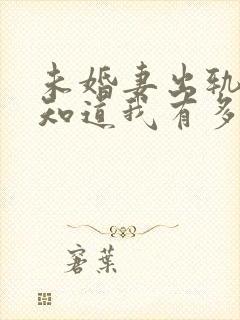 未婚妻出轨
知道我有多
窘葉